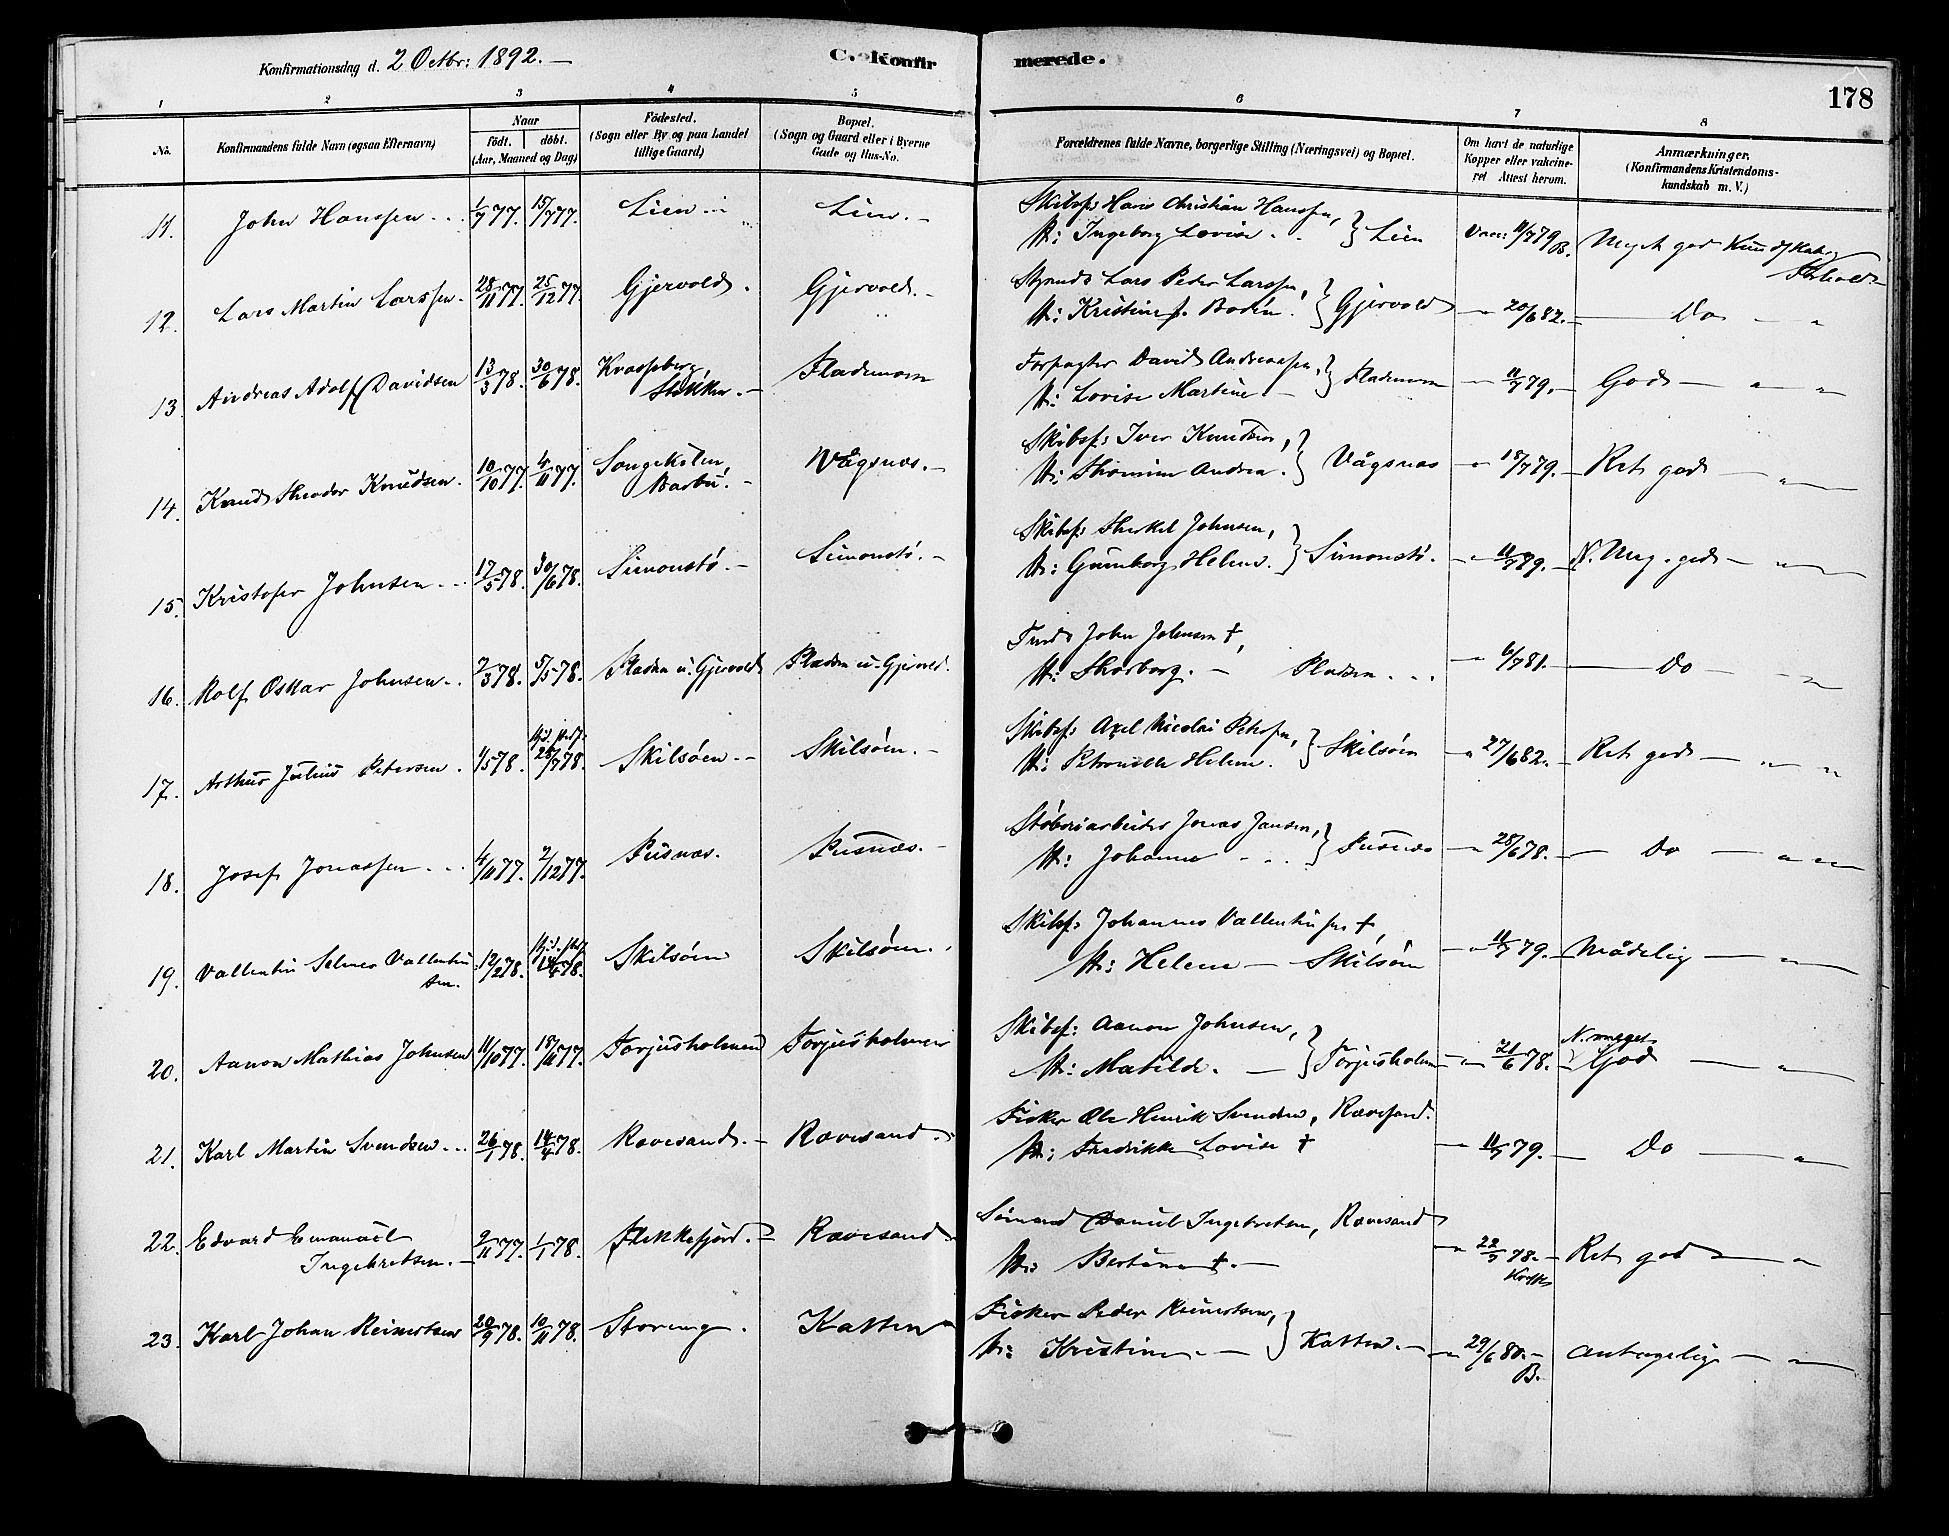 Konfirmationsdag d. 2 Octbr: 1892. —
C. Konfirmerede.
178
1 2 3 4 5 6 7 8
No.
Konfirmandens fulde Navn (ogsaa Efternavn)
Naar
födt. döbt.
(Aar, Maaned og Dag)
Födested.
(Sogn eller By og paa Landet
tillige Gaard)
Bopæl.
(Sogn og Gaard eller i Byerne
Gade og Hus-No.
Forældrenes fulde Navne, borgerlige Stilling (Næringsvei) og Bopæl.
Om havt de naturlige
Kopper eller vakcine-
ret Attest herom.
Anmærkninger.
(Konfirmandens Kristendoms-
kundskab m. V.)
11. John Hanssen 1/7 77. 15/7 77. Lien Lien. Skibsf: Hans Christian Hanssen,
H: Ingeborg Lovise } Lien Vacc: 11/7 79 B. Meget god Kundskab
Forhold
12. Lars Martin Larssen. 28/11 77. 25/12 77. Gjervold. Gjervold. Lars Peder Larssen,
H: Kristine f. Bodén } Gjervold 20/6 82. Do
13. Andreas Adolf Davidsen 13/3 78. 30/6 78. Kvasseberg, Fladenom Forpagter David Andreassen,
H: Lovise Martine } Fladenom 11/7 79. God
14. Knud Theodor Knudsen. 10/10 77. 4/11 77. Songekilen, Vågsnæs. Skibsf: Iver Knudsen,
Barbu. H: Thomine Andrea. } Vågsnæs 18/7 79. Ret god
15. Kristofer Johnsen 17/5 78. 30/6 78. Simonstø. Simonstø. Skibsf: Therkel Johnsen,
H: Gunborg Helene. } Simonstø. 11/7 79. N. Meg. god
16. Rolf Oskar Johnsen 7/3 78. 5/5 78. Pladsen u. Gjervold Pladsen u. Gjervold. John Johnsen †,
H: Thorborg. Pladsen 6/7 81. Do
17. Arthur Julius Petersen. 1/5 78. 25/7 78. Skilsøen. Skilsøen. Skibsf: Axel Nicolai Petersen,
H: Petronelle Helene. } Skilsøen 27/6 82. Ret god
18. Josef Jonassen 4/11 77. 2/12 77. Pusnæs. Pusnæs. Støberiarbeider Jonas Jansen,
H: Johanne } Pusnæs 28/6 78. Do
19. Vallentin Selmer Vallentin
sen. 12/2 78. 14/4 78. Skilsøen Skilsøen. Skibsf: Johannes Vallentinsen †,
H: Helene — Skilsøen 11/7 79. Mådelig
20. Aanon Mathias Johnsen 11/10 77. 18/11 77. Torjusholmen Torjusholmen Skibsf: Aanon Johnsen,
H: Matilde. } Torjusholmen 21/6 78. N. meget
God
21. Karl Martin Svendsen 26/1 78. 14/4 78. Rævesand. Rævesand. Fisker Ole Henrik Svendsen, Rævesand.
H: Fredrikke Lovise † 11/7 79. Do
22. Edvard Emanuel
Ingebretsen. 9/11 77. 1/1 78. Flekkefjord. Rævesand Sømand Daniel Ingebretsen, Rævesand
H: Bertine †. 22/7 78. Ret god
23. Karl Johan Reinertsen 20/9 78. 10/11 78. Storeng. Katten Fisker Peder Reinertsen,
H: Kristine. } Katten. 29/6 80. B. Antagelig